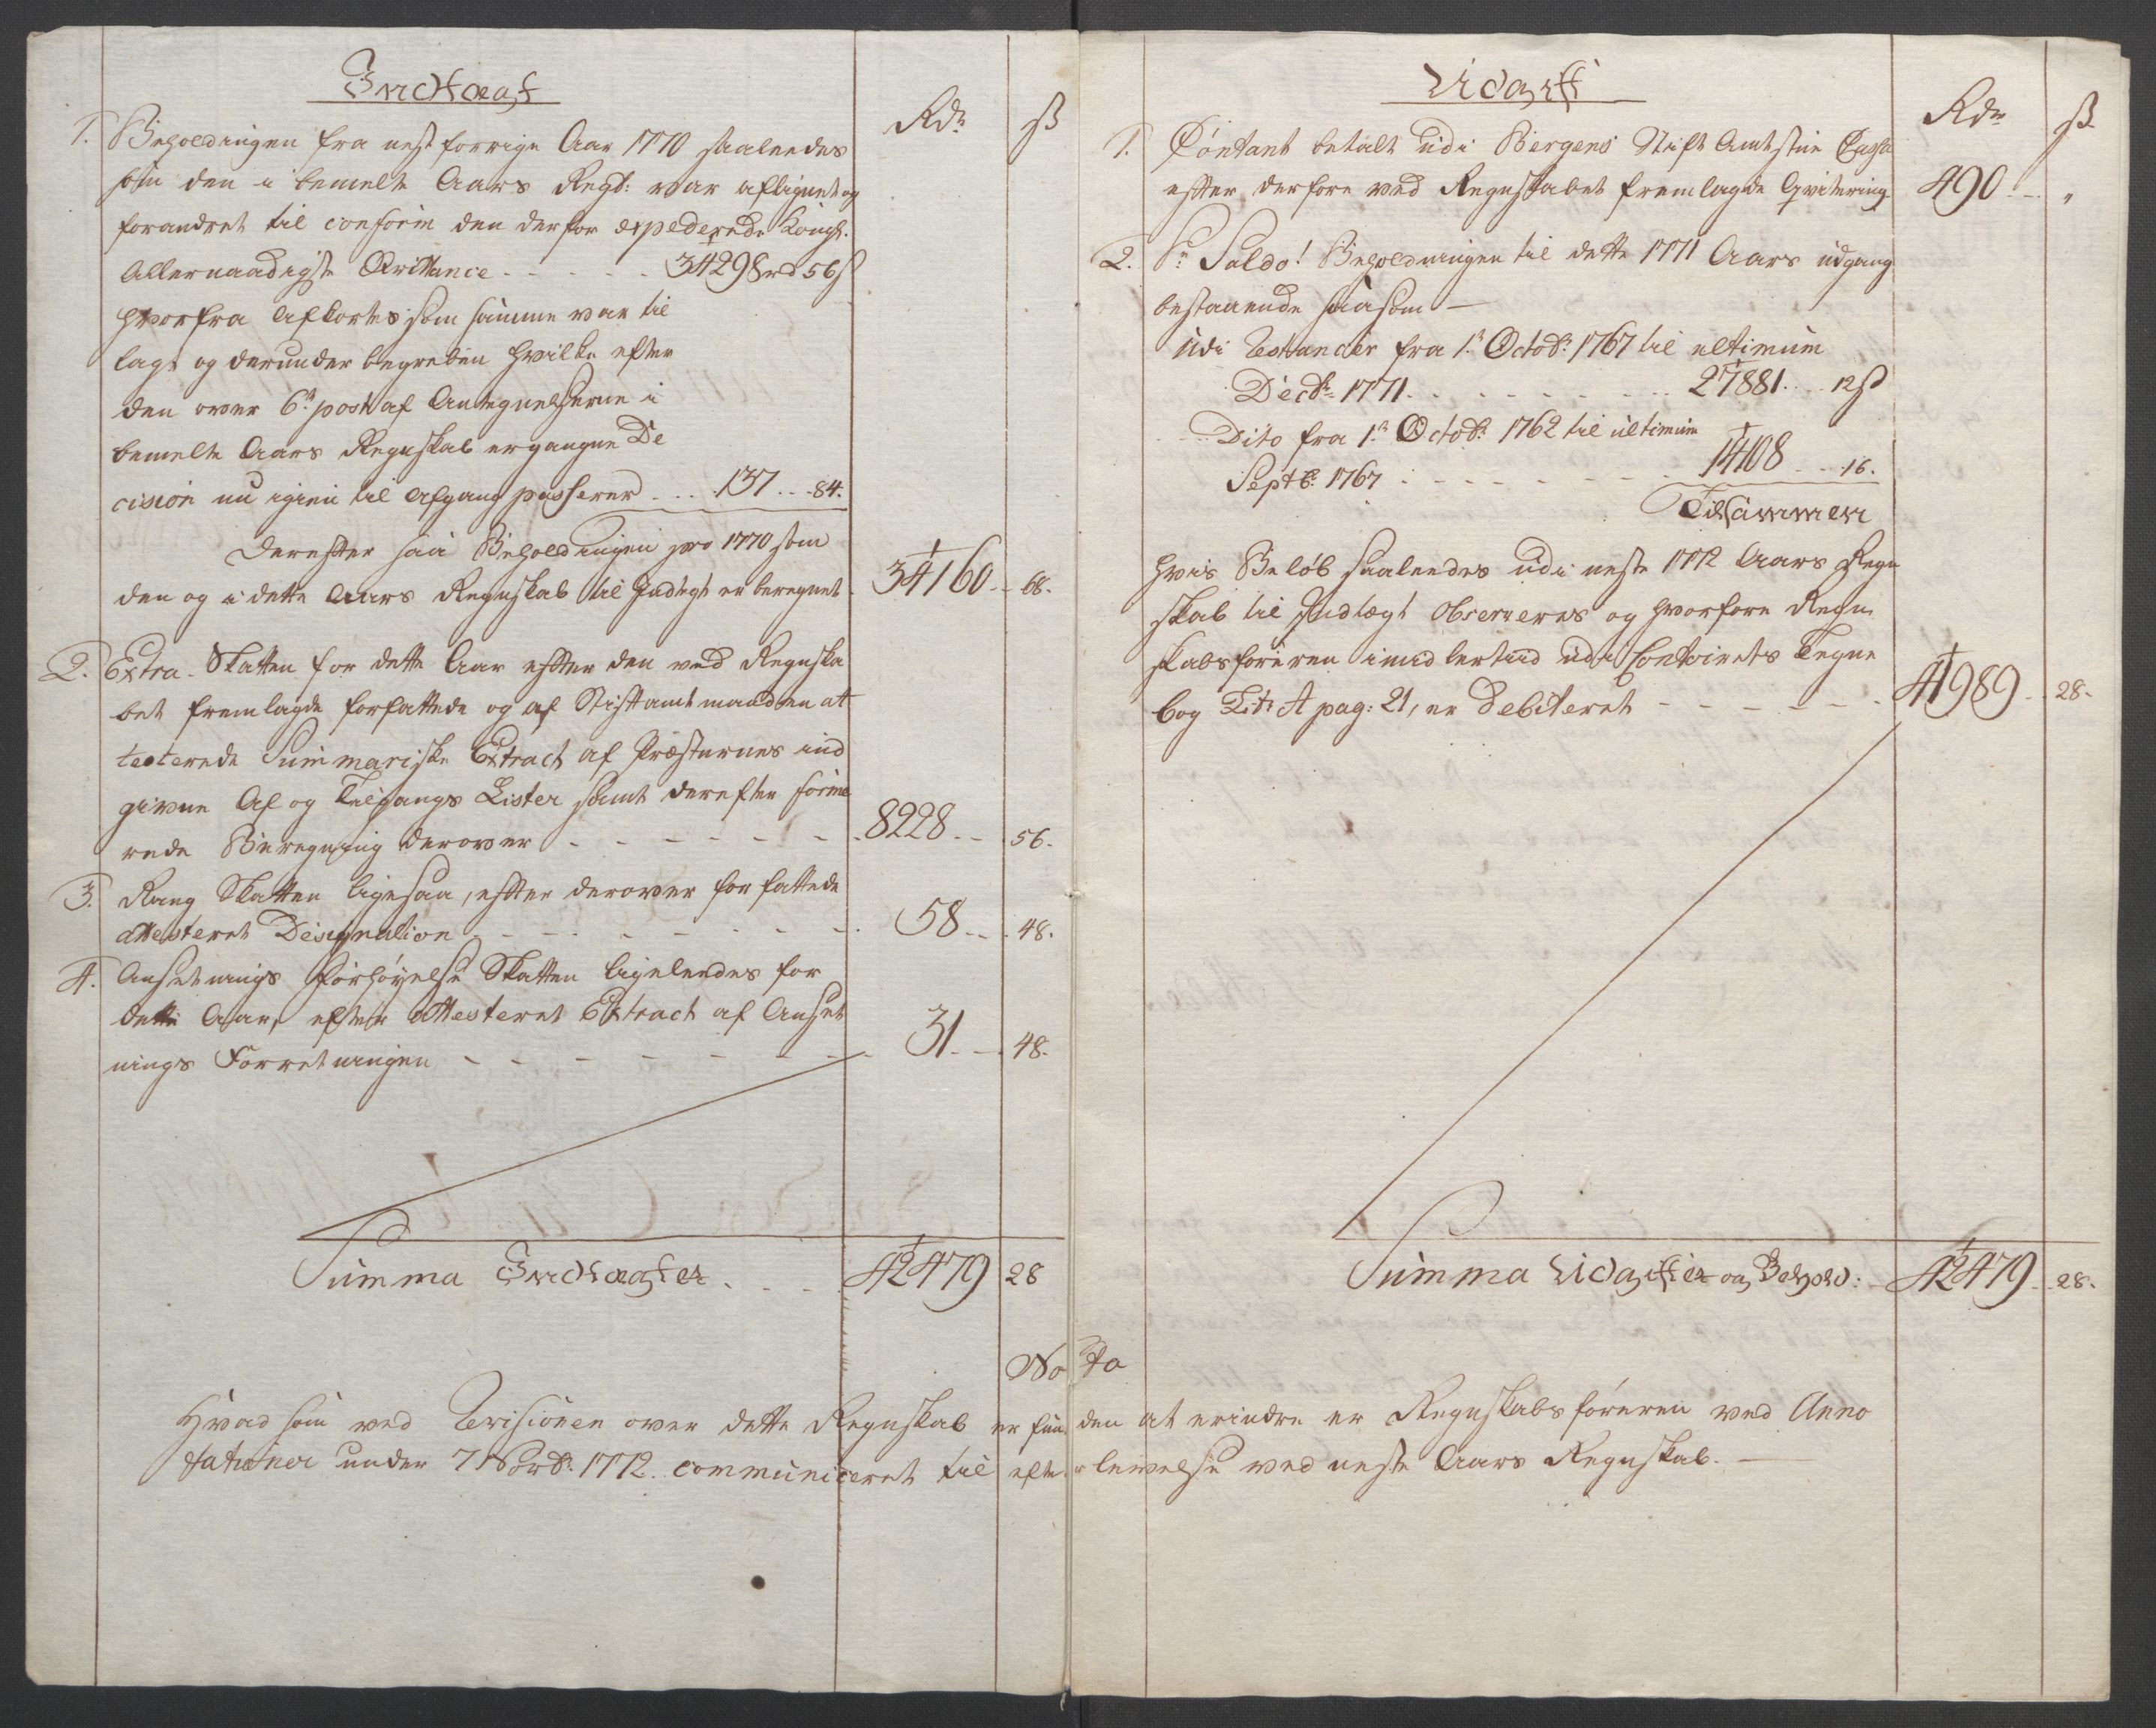 Indtægt
Rdr ß
1. Beholdingen fra nest forrige Aar 1770 saaledes
som den i bemelte Aars Regsk: var aflignet og
forandret til conform den derfor expederede Kongl.
Allernaadigste Qvittance - - - - - 34298 rd 56 ß
hvorfra Afkortes som samme var til
lagt og derunder begreben hvilke efter
den over 6te post af Antegnelserne i
bemelte Aars Regnskab ergangne De
cision nu igien til Afgang passerer - - - 137 - - 84.
Derefter saa Beholdingen pro 1770 som
den og i dette Aars Regnskab til Indtegt er beregnet - 34160 - - 68.
2. Extra Skatten for dette Aar efter den ved Regnska
bet fremlagde forfattede og af Stiftamtmanden at
testerede Summariske Extract af Præsternes ind
givne Af og Tilgangs Lister samt derefter forme
rede Beregning derover - - - - - - - 8228 - - 56.
3. Rang Skatten ligesaa, efter derover forfattede
attesteret Designation - - - - - - - - 58 - - 48.
4. Ansetnings Forhøyelse Skatten ligeledes for
dette Aar, efter attesteret Extract af Anset
nings Forretningen - - - - - - - - 31 - - 48.
Summa Indtægter - - - 42479 28
Udgift
Rdr ß
1. Contant betalt udi Bergens Stift Amtstue Cassa
efter derfore ved Regnskabet fremlagde Qvitering - 490 - - "
2. Pr Saldo! Beholdningen til dette 1711 Aars udgang
bestaaende saasom —
Udi Restancer fra 1te Octobr: 1767 til ultimum
Decbr: 1771 - - - - - - - 27881 - - 12 ß
Dito fra 1te Octobr: 1762 til ultimum
Septbr: 1767 - - - - - - - 14108 - - 16.
Tilsammen
hvis Beløb saaledes udi neste 1772 Aars Regn
skab til Indtægt Observeres og hvorfore Regn
skabsføreren imidlertiid udi Contoirets Tegne
bog Litr A pag: 21, er Debiteret - - - - - - 41989 - - 28.
Summa Udgifter og Behold: - 42479 - - 28.
Nota
Hvad som ved Revisionen over dette Regnskab er funden at erindre er Regnskabsføreren ved Anno
tationer under 7 Novbr: 1772. communiceret til efterlevelse ved neste Aars Regnskab. —